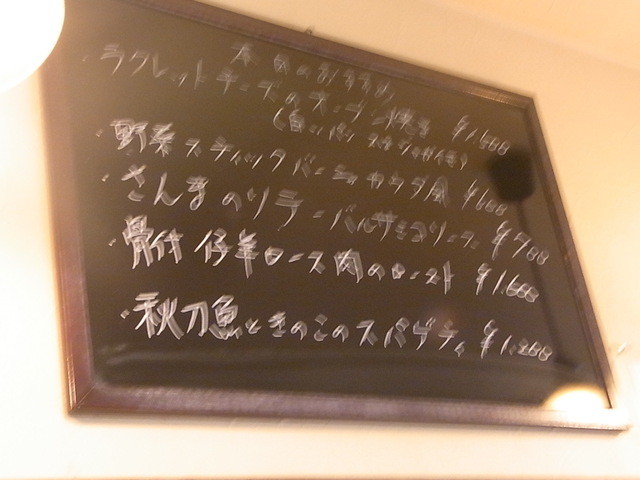 本日のおすすめ
・ラクレットチーズのオーブン焼き ¥1,500
・野菜スティックバーニャカウダ風 ¥600
・さんまのソテーバルサミコソース ¥700
・骨付仔羊ロース肉のロースト ¥1,600
・秋刀魚ときのこのスパゲティ ¥1,200